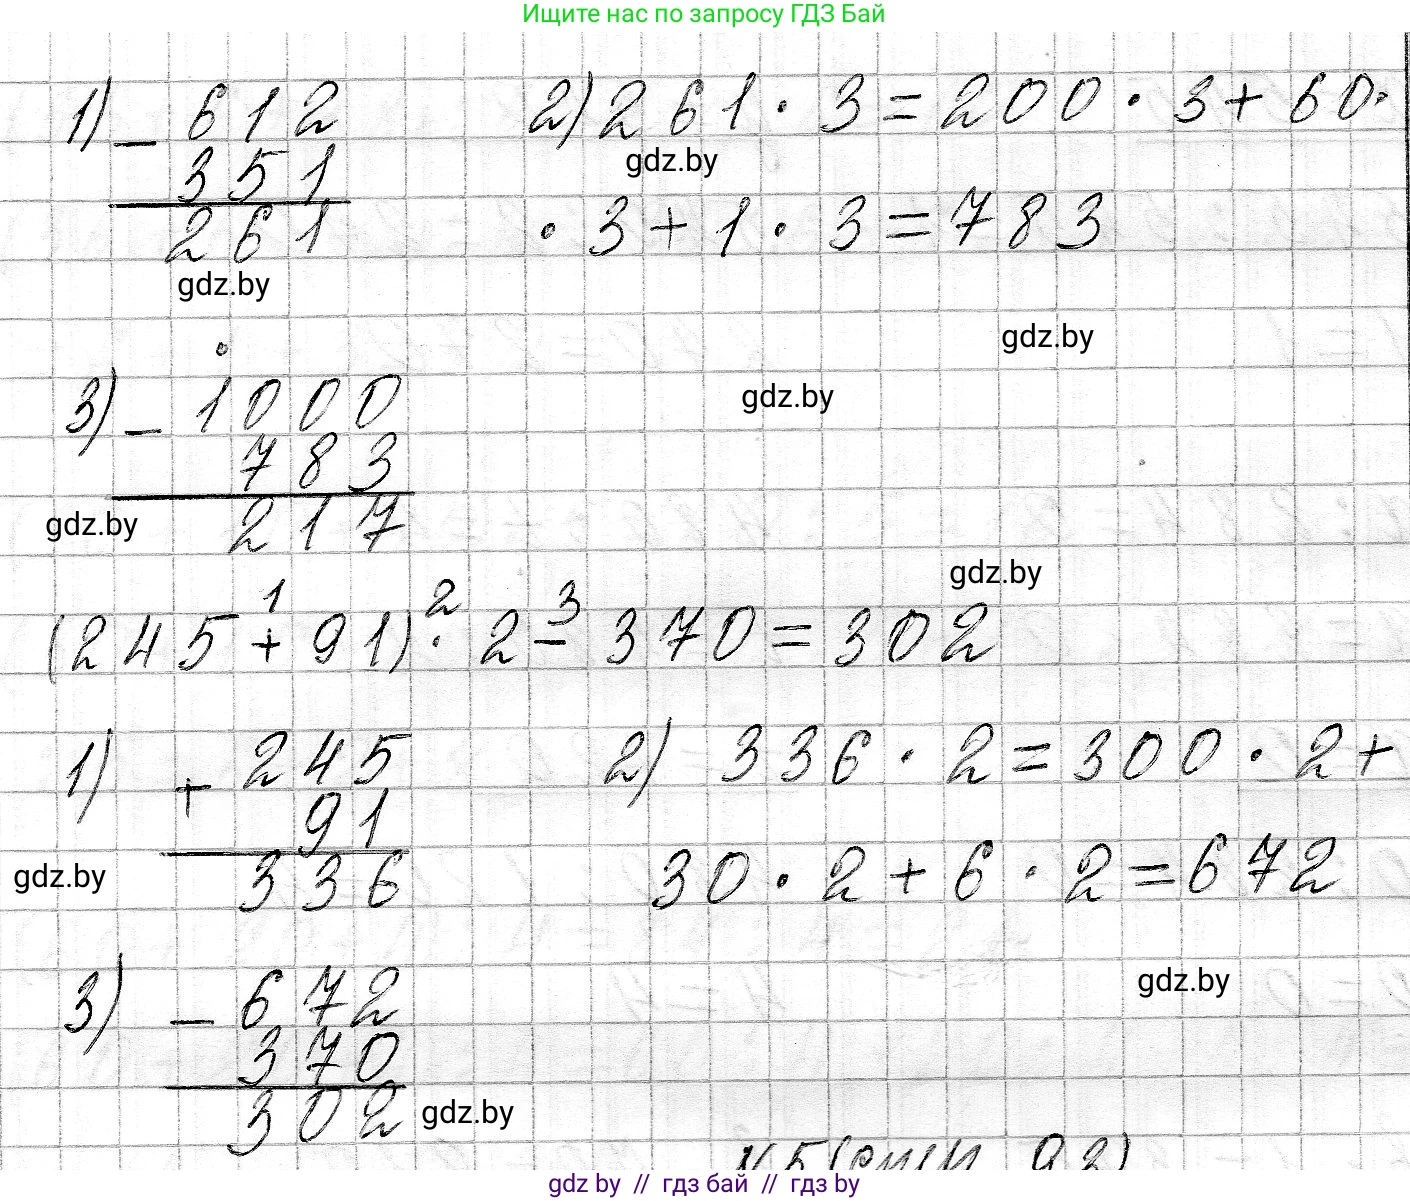 Ищите нас по запросу ГДЗ Бай
1) − 612
351
261
2) 261 · 3 = 200 · 3 + 60 ·
· 3 + 1 · 3 = 783
gdz.by
gdz.by
gdz.by
gdz.by
3) − 1000
783
217
gdz.by
gdz.by
1 2 3
(245 + 91) · 2 − 370 = 302
1) + 245
91
336
2) 336 · 2 = 300 · 2 +
30 · 2 + 6 · 2 = 672
gdz.by
3) − 672
370
302
gdz.by
gdz.by
gdz by // гдз бай // гдз by